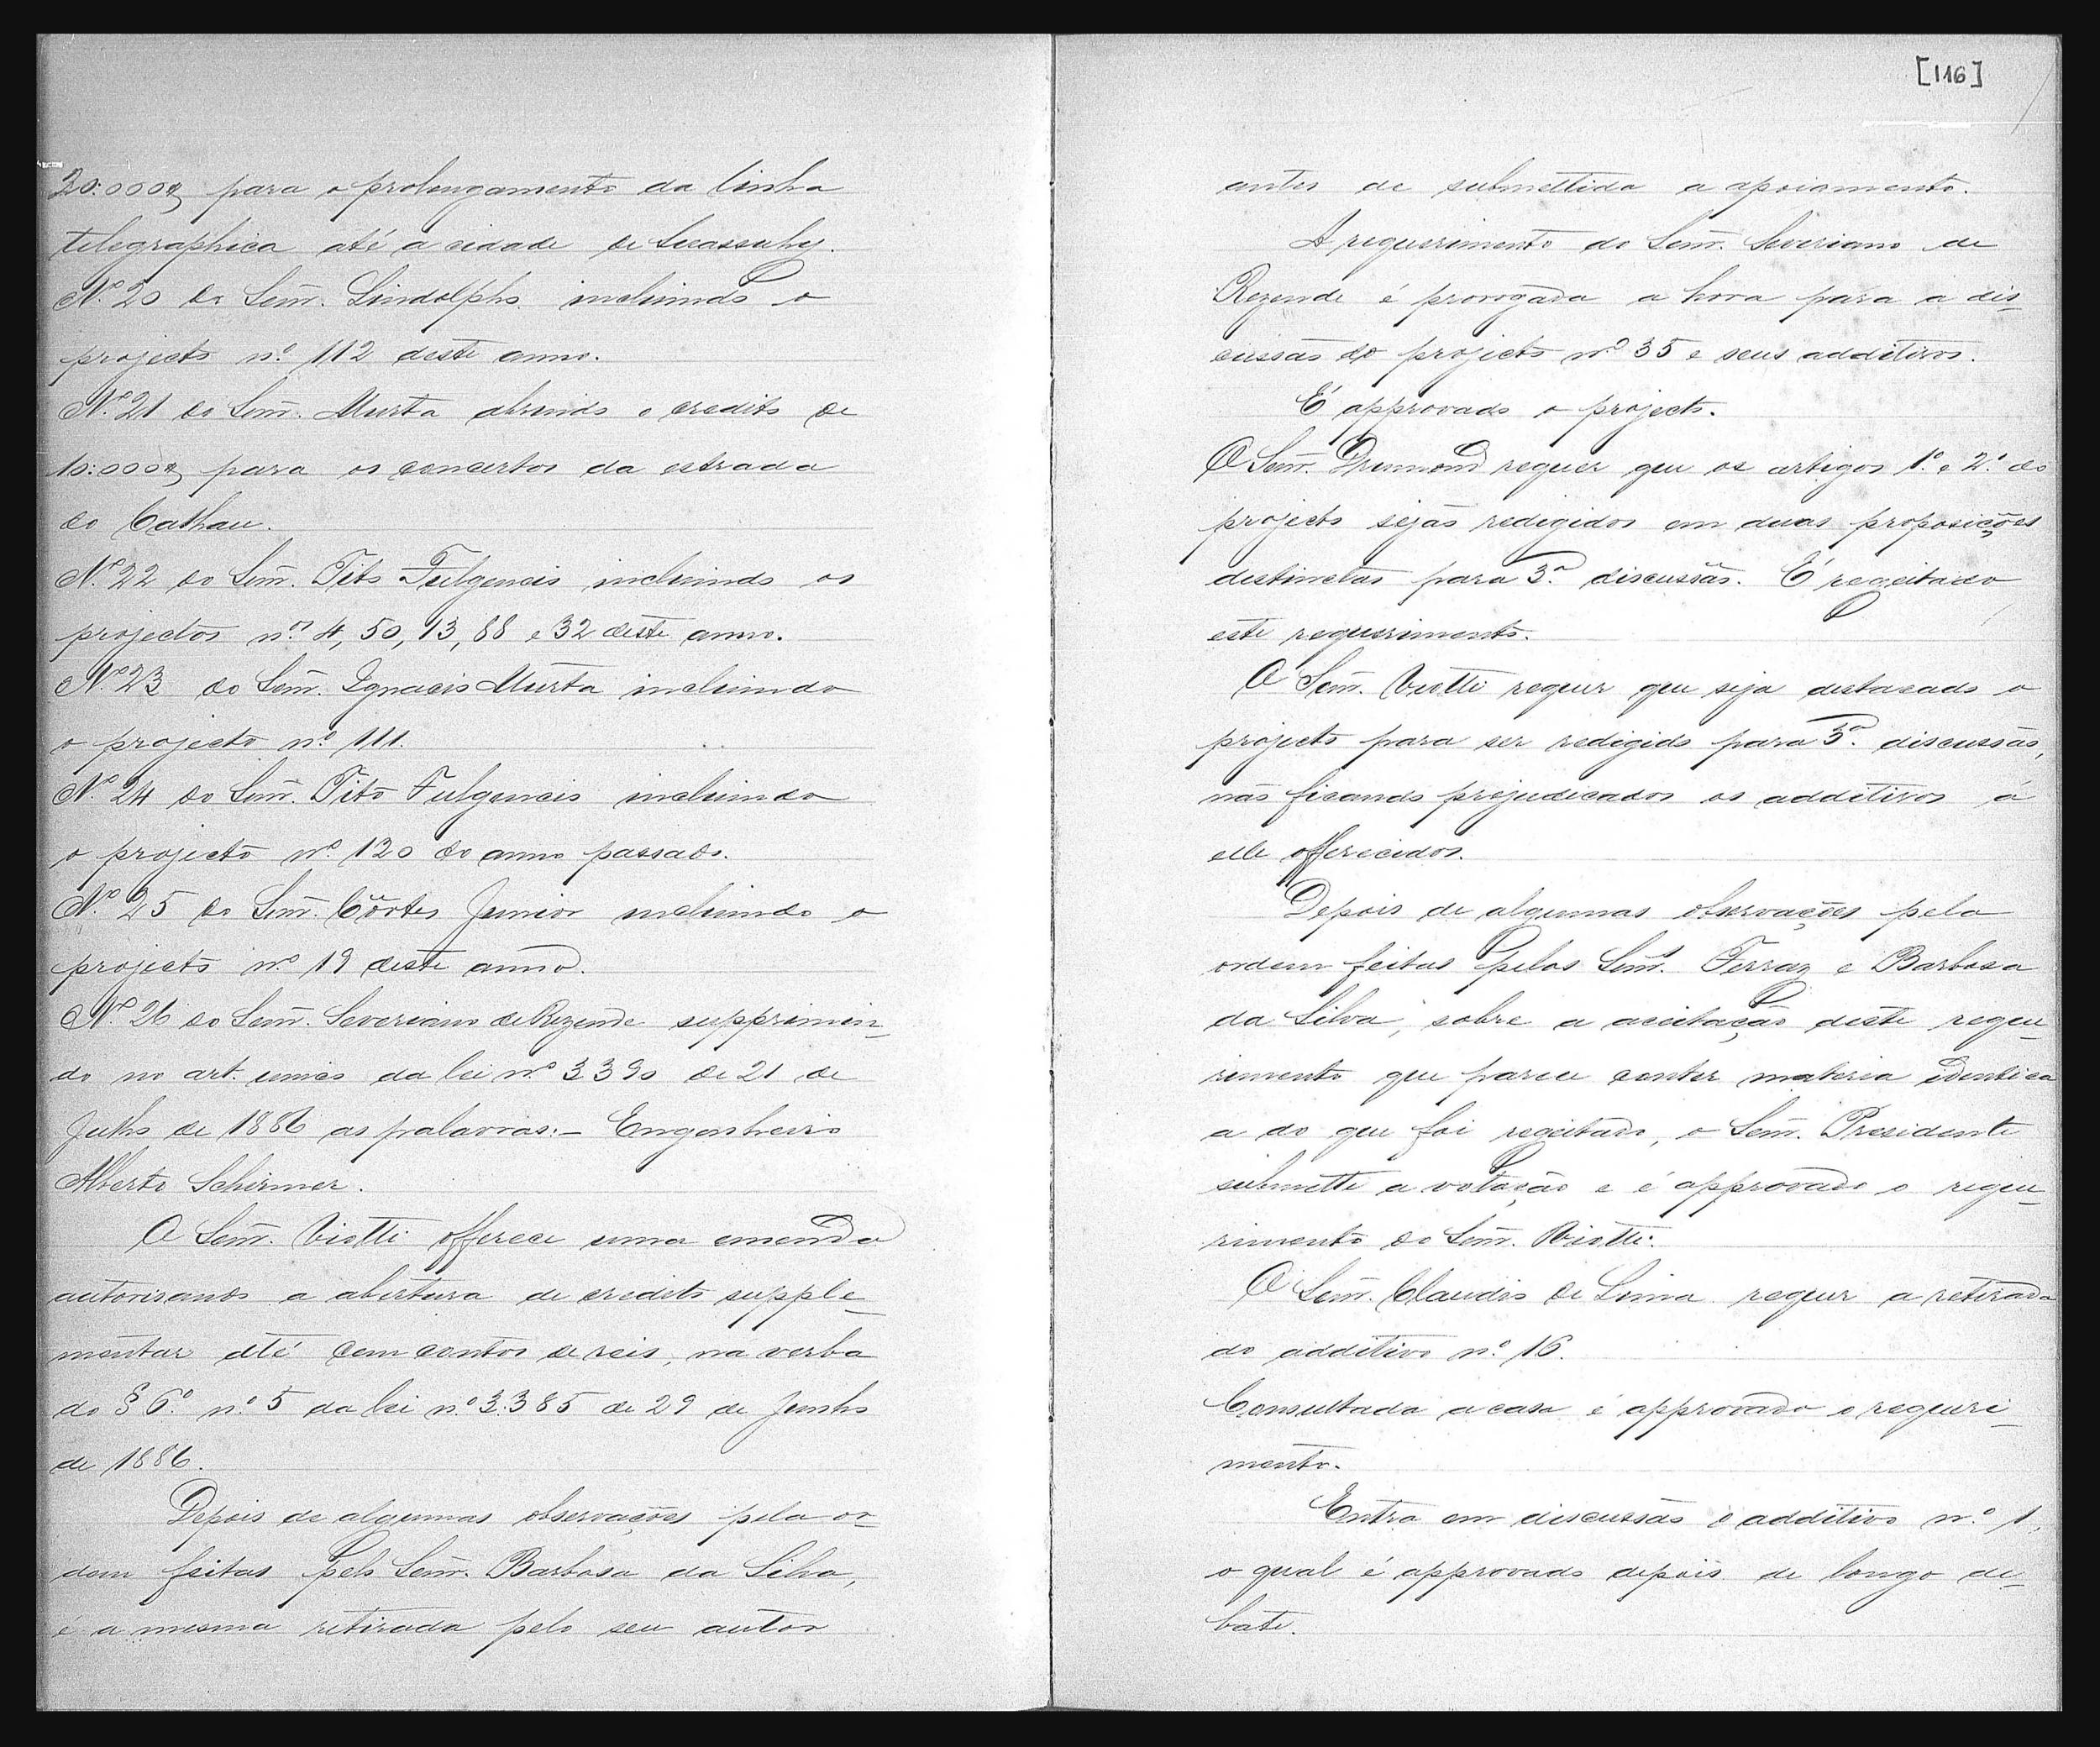 20:000$ para o prolongamento da linha
telegraphica até a cidade de Suassuhy.
Nº 20 do Senr. Lindolpho incluindo o
projecto nº 112 deste anno.
Nº 21 do Senr. Murta abrindo o credito de
10:000$ para os concertos da estrada
do Calhau.
Nº 22 do Senr. Tito Fulgencio incluindo os
projectos nos 4, 50, 13, 88 e 32 deste anno.
Nº 23 do Senr. Ignacio Murta incluindo
o projecto nº 111.
Nº 24 do Senr. Tito Fulgencio incluindo
o projecto nº 120 do anno passado.
Nº 25 do Senr. Côrtes Junior incluindo o
projecto nº 19 deste anno.
Nº 26 do Senr. Severiano de Rezende supprimin-
do no art. unico da lei nº 3390 de 21 de
Julho de 1886 as palavras:- Engenheiro
Alberto Schirmer.
O Senr. Viotti offerece uma emenda
autorisando a abertura de credito supple-
mentar até cem contos de reis, na verba
do § 6º nº 5 da lei nº 3.385 de 29 de Junho
de 1886.
Depois de algumas observações pela or-
dem feitas pelo Senr. Barbosa da Silva,
é a mesma retirada pelo seu autor
[116]
antes de submettida a apoiamento.
A requerimento do Senr. Severiano de
Rezende é prorogada a hora para a dis-
cussão do projecto nº 35 e seus additivos.
É approvado o projecto.
O Senr. Drumond requer que os artigos 1º e 2º do
projecto sejão redigidos em duas proposições
distinctas para 3ª discussão. É regeitado
este requerimento.
O Senr. Viotti requer que seja destacado o
projecto para ser redigido para 3ª discussão,
não ficando prejudicados os additivos á
elle offerecidos.
Depois de algumas observações pela
ordem feitas pelos Senrs. Ferraz e Barbosa
da Silva, sobre a aceitação deste reque-
rimento que parece conter materia identica
a do que foi regeitado, o Senr. Presidente
submette a votação e é approvado o reque-
rimento do Senr. Viotti.
O Senr. Claudio de Lima requer a retirada
do additivo nº 16.
Consultada a casa é approvado o requeri-
mento.
Entra em discussão o additivo nº 1,
o qual é approvado depois de longo de-
bate.